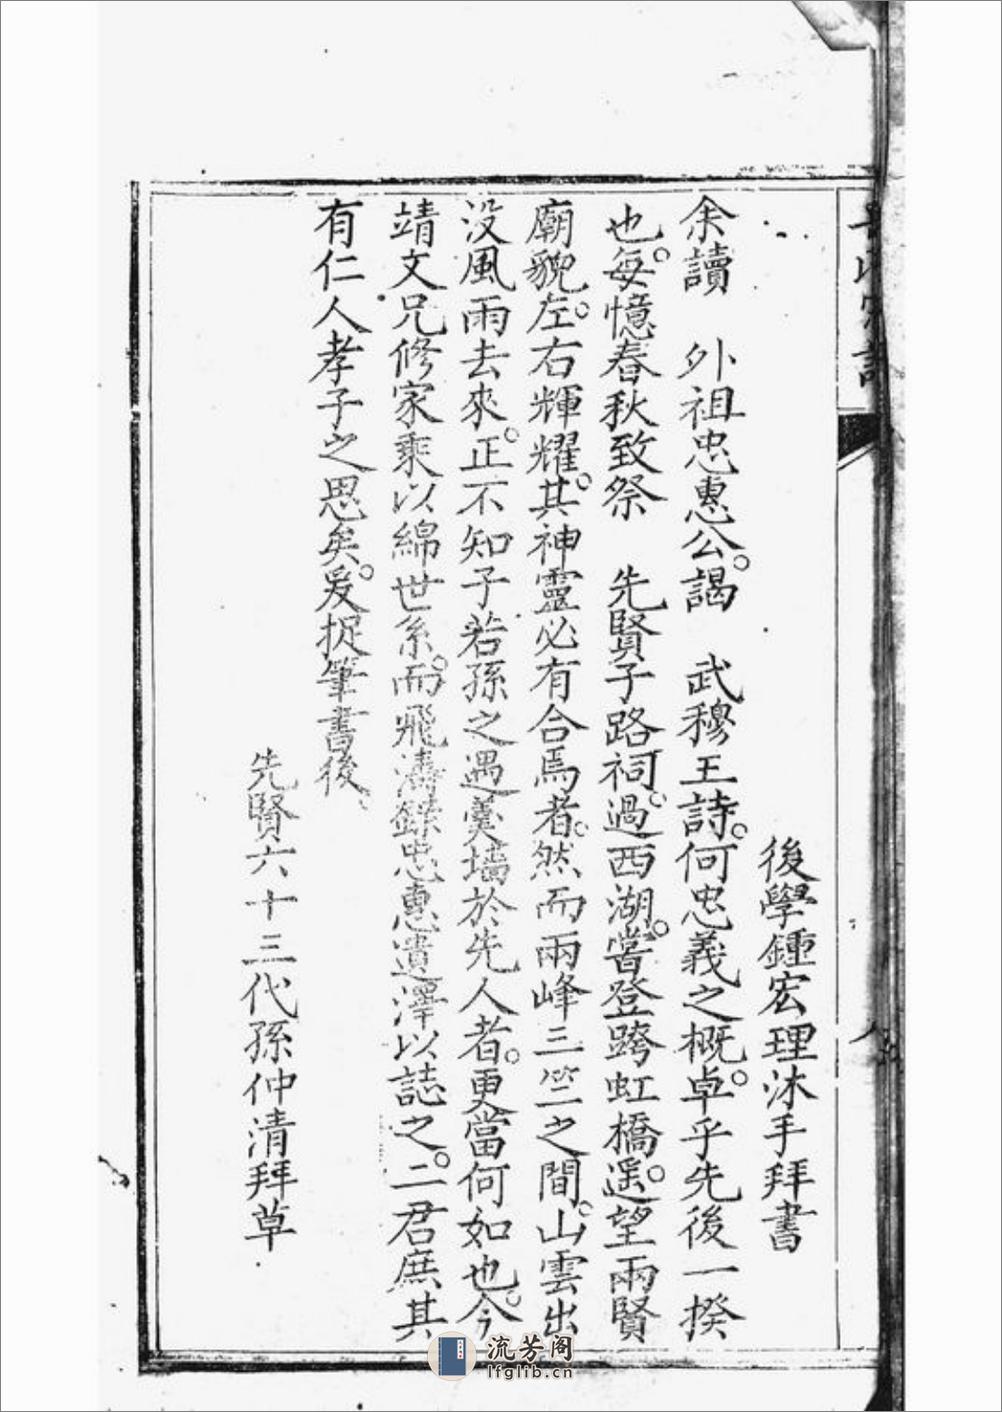 後學鍾宏理沐手拜書
余讀　外祖忠惠公謁　武穆王詩何忠義之概卓乎先後一揆
也每憶春秋致祭　先賢子路祠過西湖嘗登跨虹橋遥望兩賢
廟貌左右輝耀其神靈必有合焉者然而兩峰三竺之間山雲出
没風雨去來正不知子若孫之遇羹墻於先人者更當何如也今
靖文兄修家乘以綿世系而飛濤錄忠惠遺澤以誌之二君庶其
有仁人孝子之思矣爰捉筆書後
先賢六十三代孫仲清拜草
流芳阁
lfglib.cn